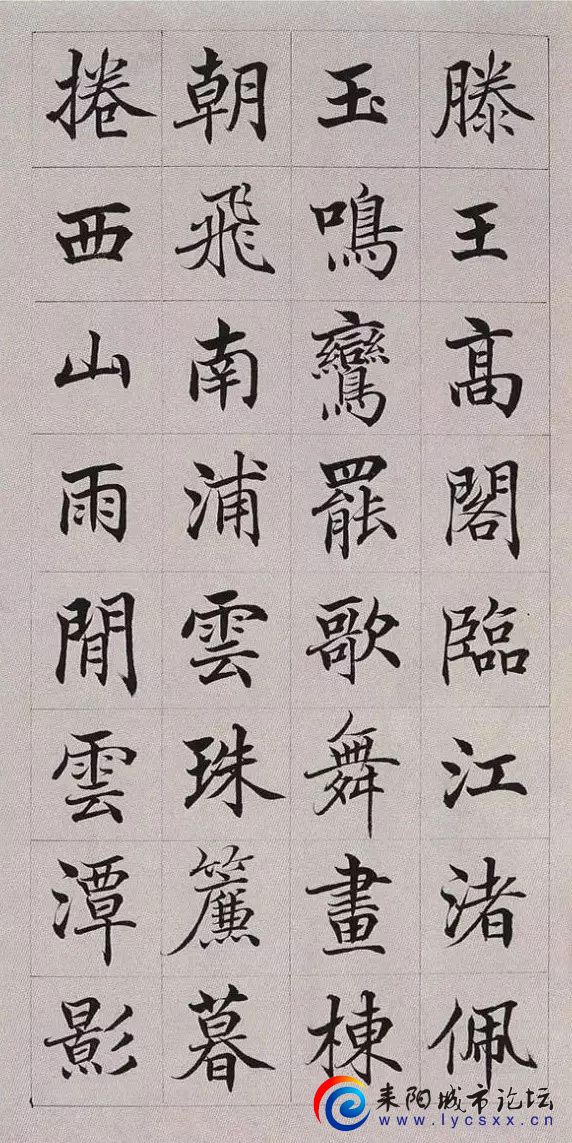 滕王高閣臨江渚佩
玉鳴鸞罷歌舞畫棟
朝飛南浦雲珠簾暮
捲西山雨閒雲潭影
耒阳城市论坛
www.lycsxx.cn